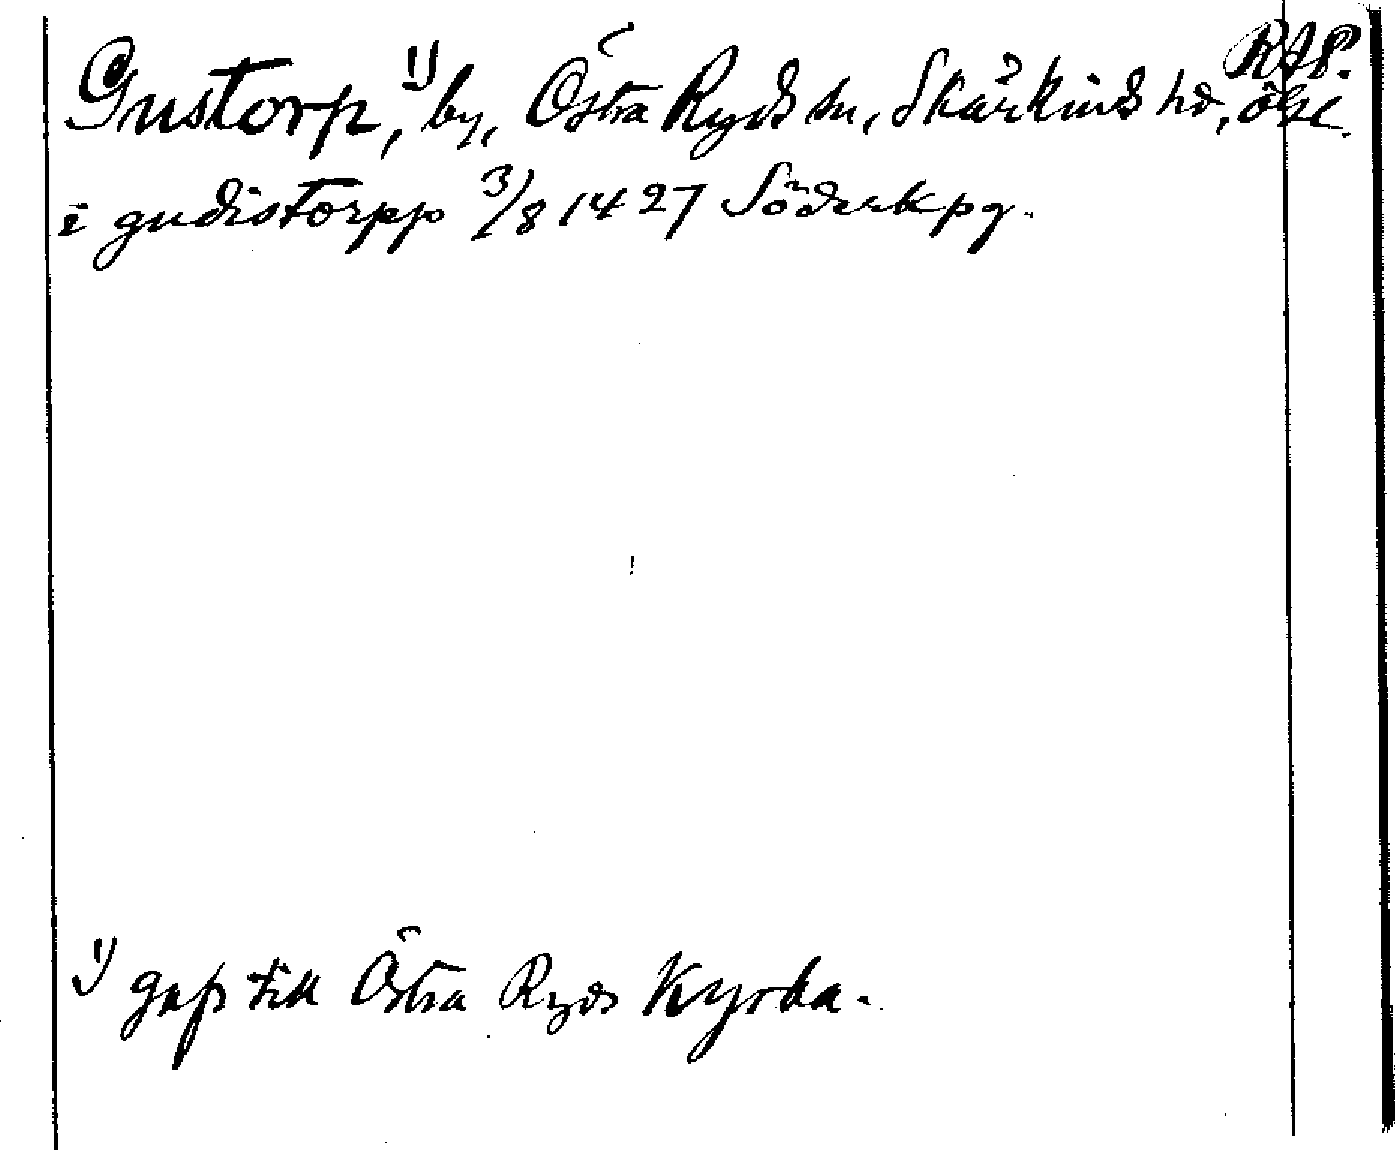 RAP.
Gustorp,¹⁾ by, Östra Ryds sn, Skärkinds hd, Ögl.
i gudistorpp 3/8 1427 Söderkpg.
¹⁾ gafs till Östra Ryds Kyrka.